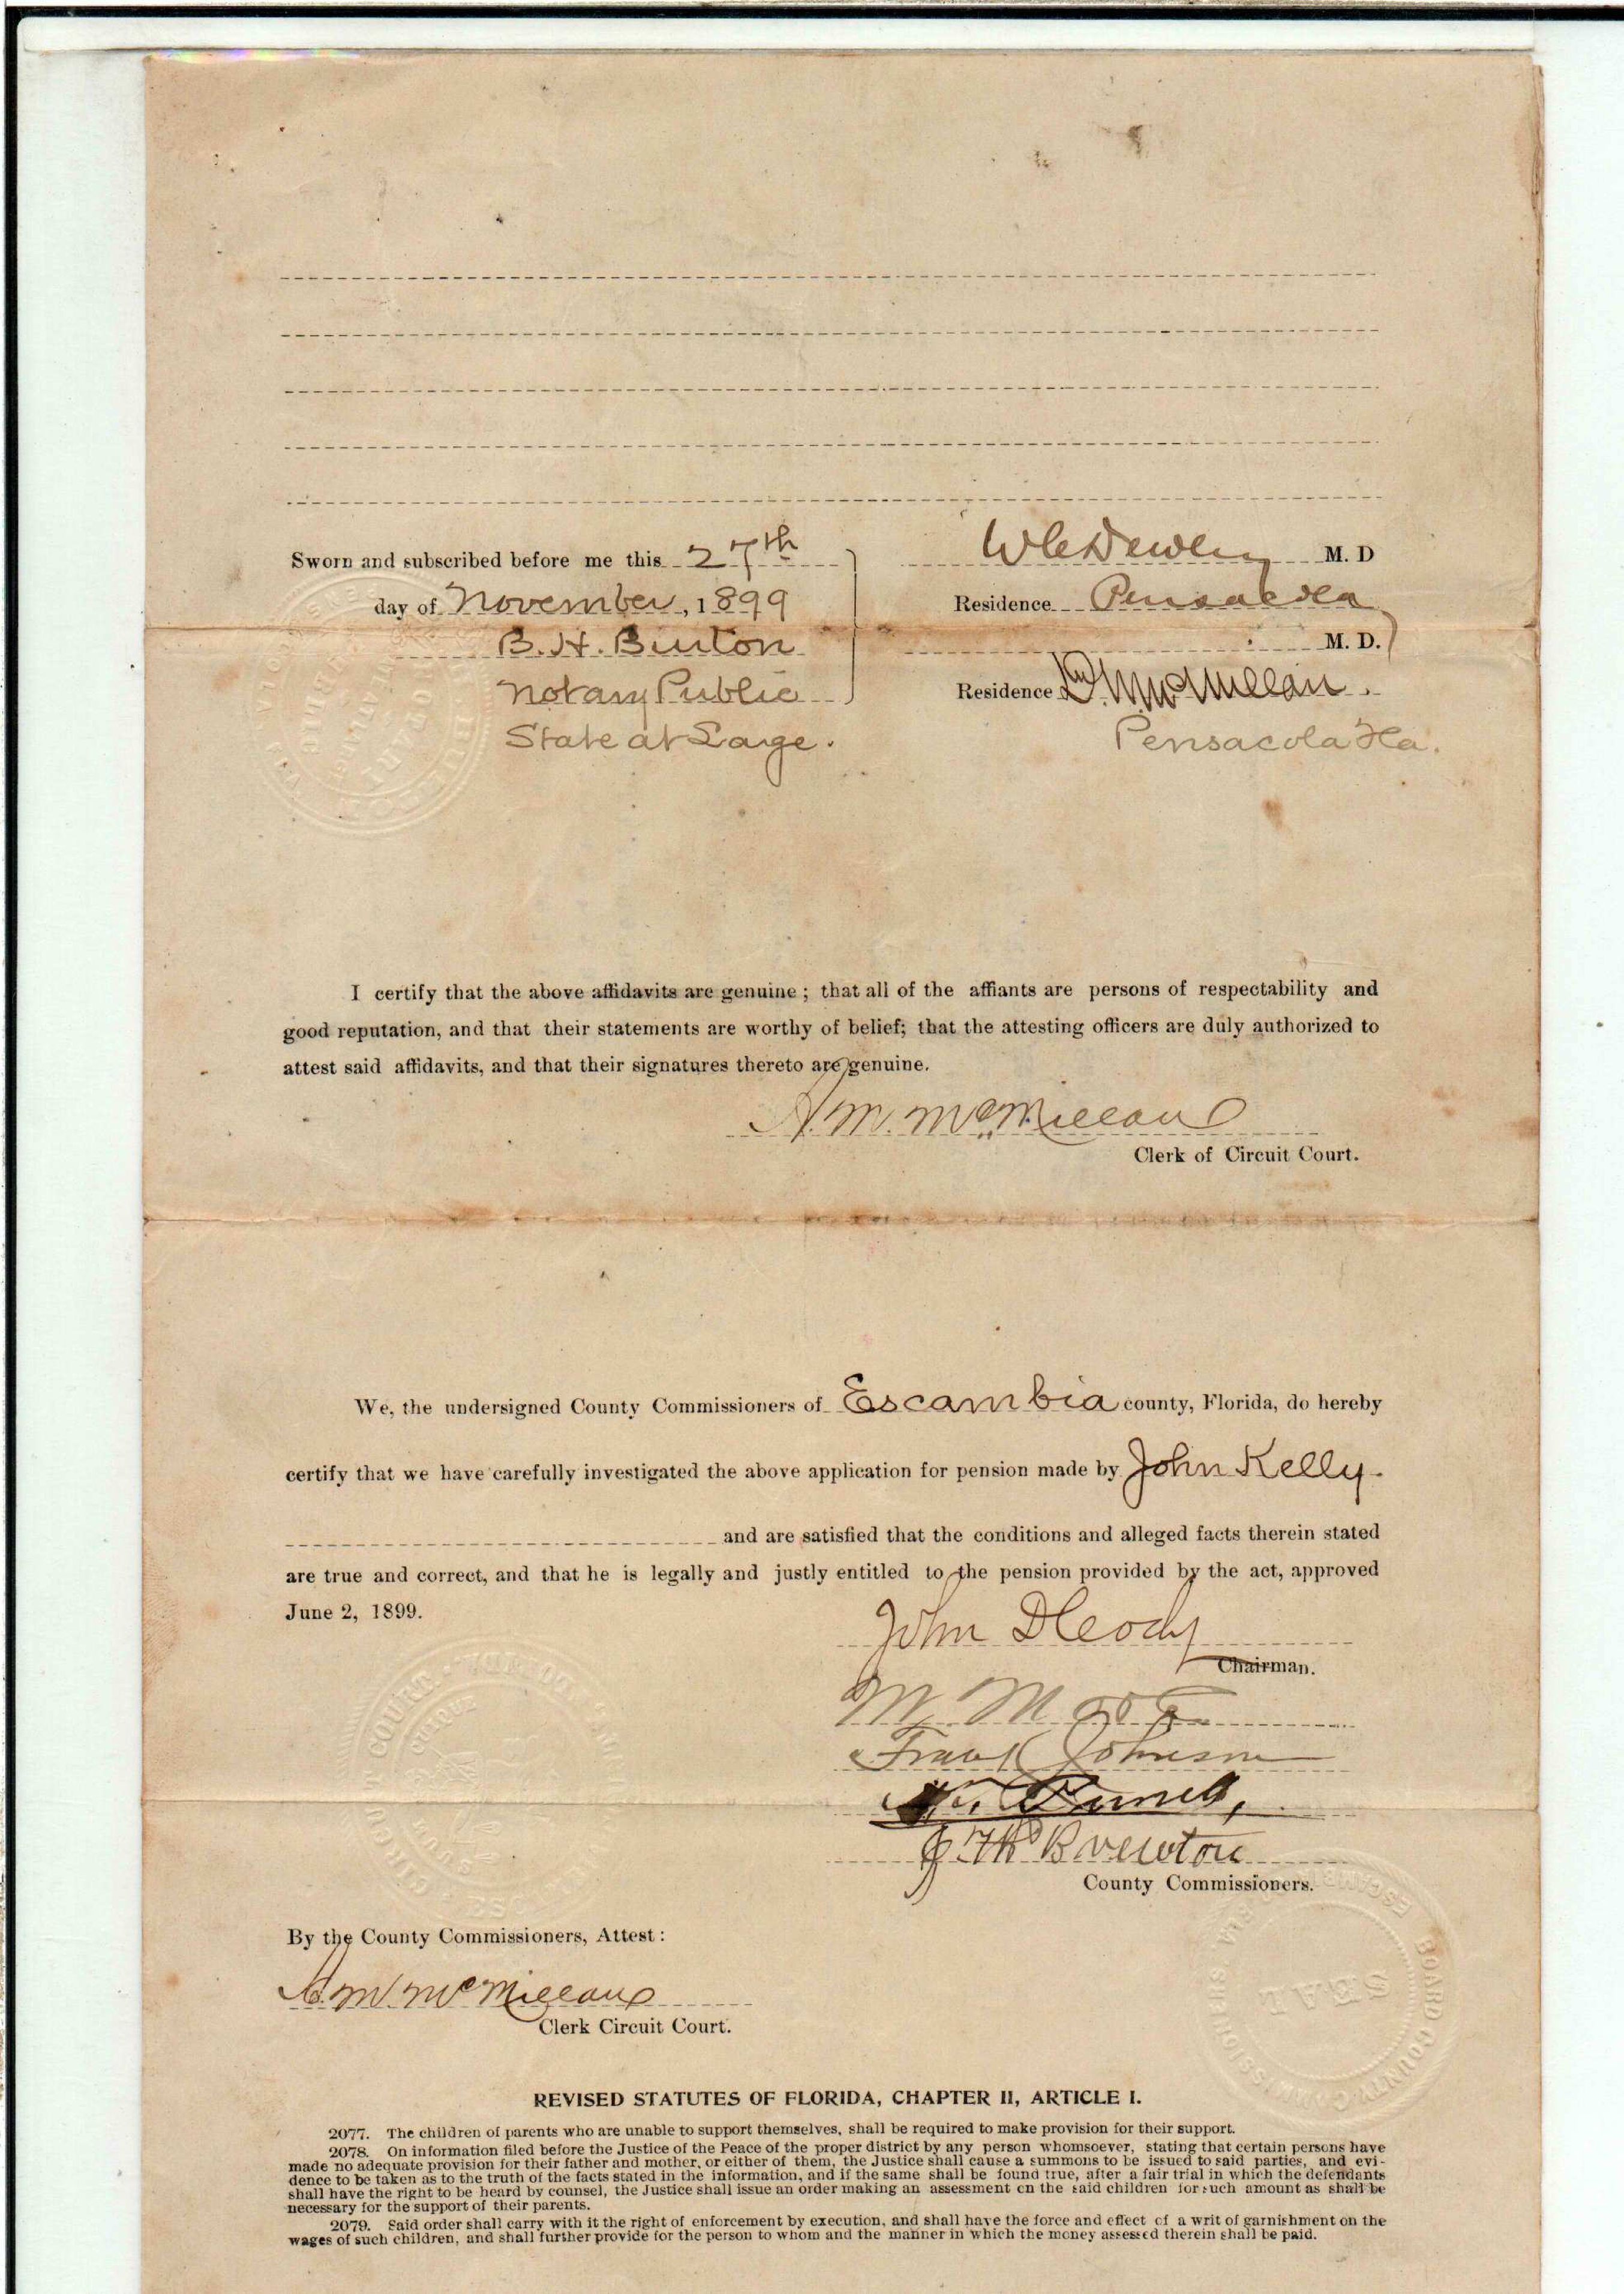 Sworn and subscribed before me this 27th
day of November, 1899
B. H. Burton
Notary Public
State at Large.
M. D
Residence Pensacola
M. D.
Residence McMillan
Pensacola Fla.
I certify that the above affidavits are genuine; that all of the affiants are persons of respectability and
good reputation, and that their statements are worthy of belief; that the attesting officers are duly authorized to
attest said affidavits, and that their signatures thereto are genuine.
A. M. McMillan
Clerk of Circuit Court.
We, the undersigned County Commissioners of Escambia county, Florida, do hereby
certify that we have carefully investigated the above application for pension made by John Kelly
and are satisfied that the conditions and alleged facts therein stated
are true and correct, and that he is legally and justly entitled to the pension provided by the act, approved
June 2, 1899.
John
Chairman.
Frank Johnson
County Commissioners.
By the County Commissioners, Attest:
A. M. McMillan
Clerk Circuit Court.
SEAL
BOARD COUNTY COMMISSION
REVISED STATUTES OF FLORIDA, CHAPTER II, ARTICLE I.
2077. The children of parents who are unable to support themselves, shall be required to make provision for their support.
2078. On information filed before the Justice of the Peace of the proper district by any person whomsoever, stating that certain persons have
made no adequate provision for their father and mother, or either of them, the Justice shall cause a summons to be issued to said parties, and evi-
dence to be taken as to the truth of the facts stated in the information, and if the same shall be found true, after a fair trial in which the defendants
shall have the right to be heard by counsel, the Justice shall issue an order making an assessment on the said children for such amount as shall be
necessary for the support of their parents.
2079. Said order shall carry with it the right of enforcement by execution, and shall have the force and effect of a writ of garnishment on the
wages of such children, and shall further provide for the person to whom and the manner in which the money assessed therein shall be paid.